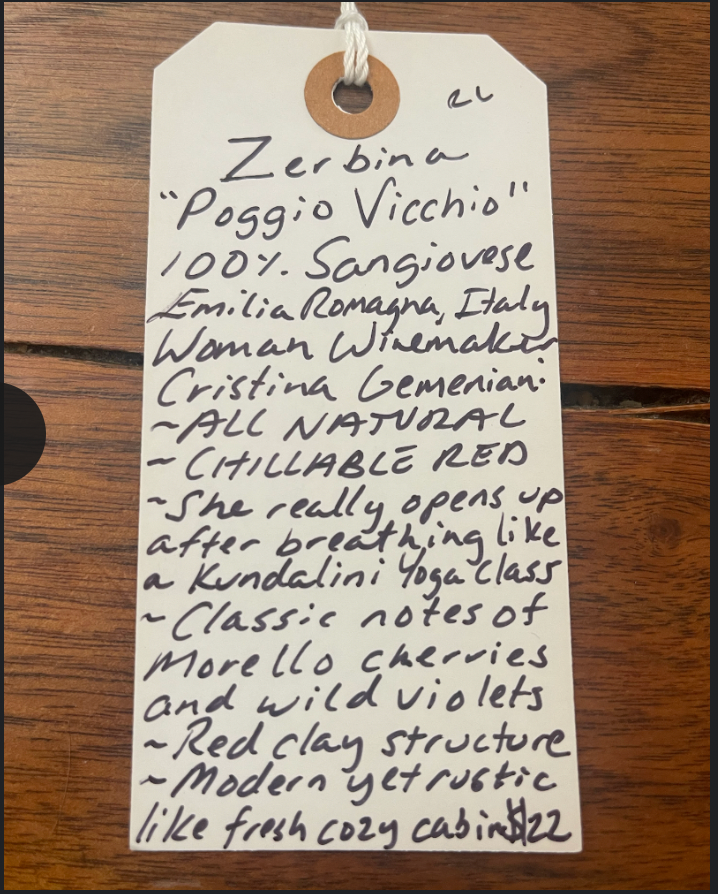 RL
Zerbina
"Poggio Vicchio"
100% Sangiovese
Emilia Romagna, Italy
Woman Winemaker
Cristina Gemeniani
~ALL NATURAL
~CHILLABLE RED
~She really opens up
after breathing like
a Kundalini Yoga class
~Classic notes of
Morello cherries
and wild violets
~Red clay structure
~Modern yet rustic
like fresh cozy cabin $22